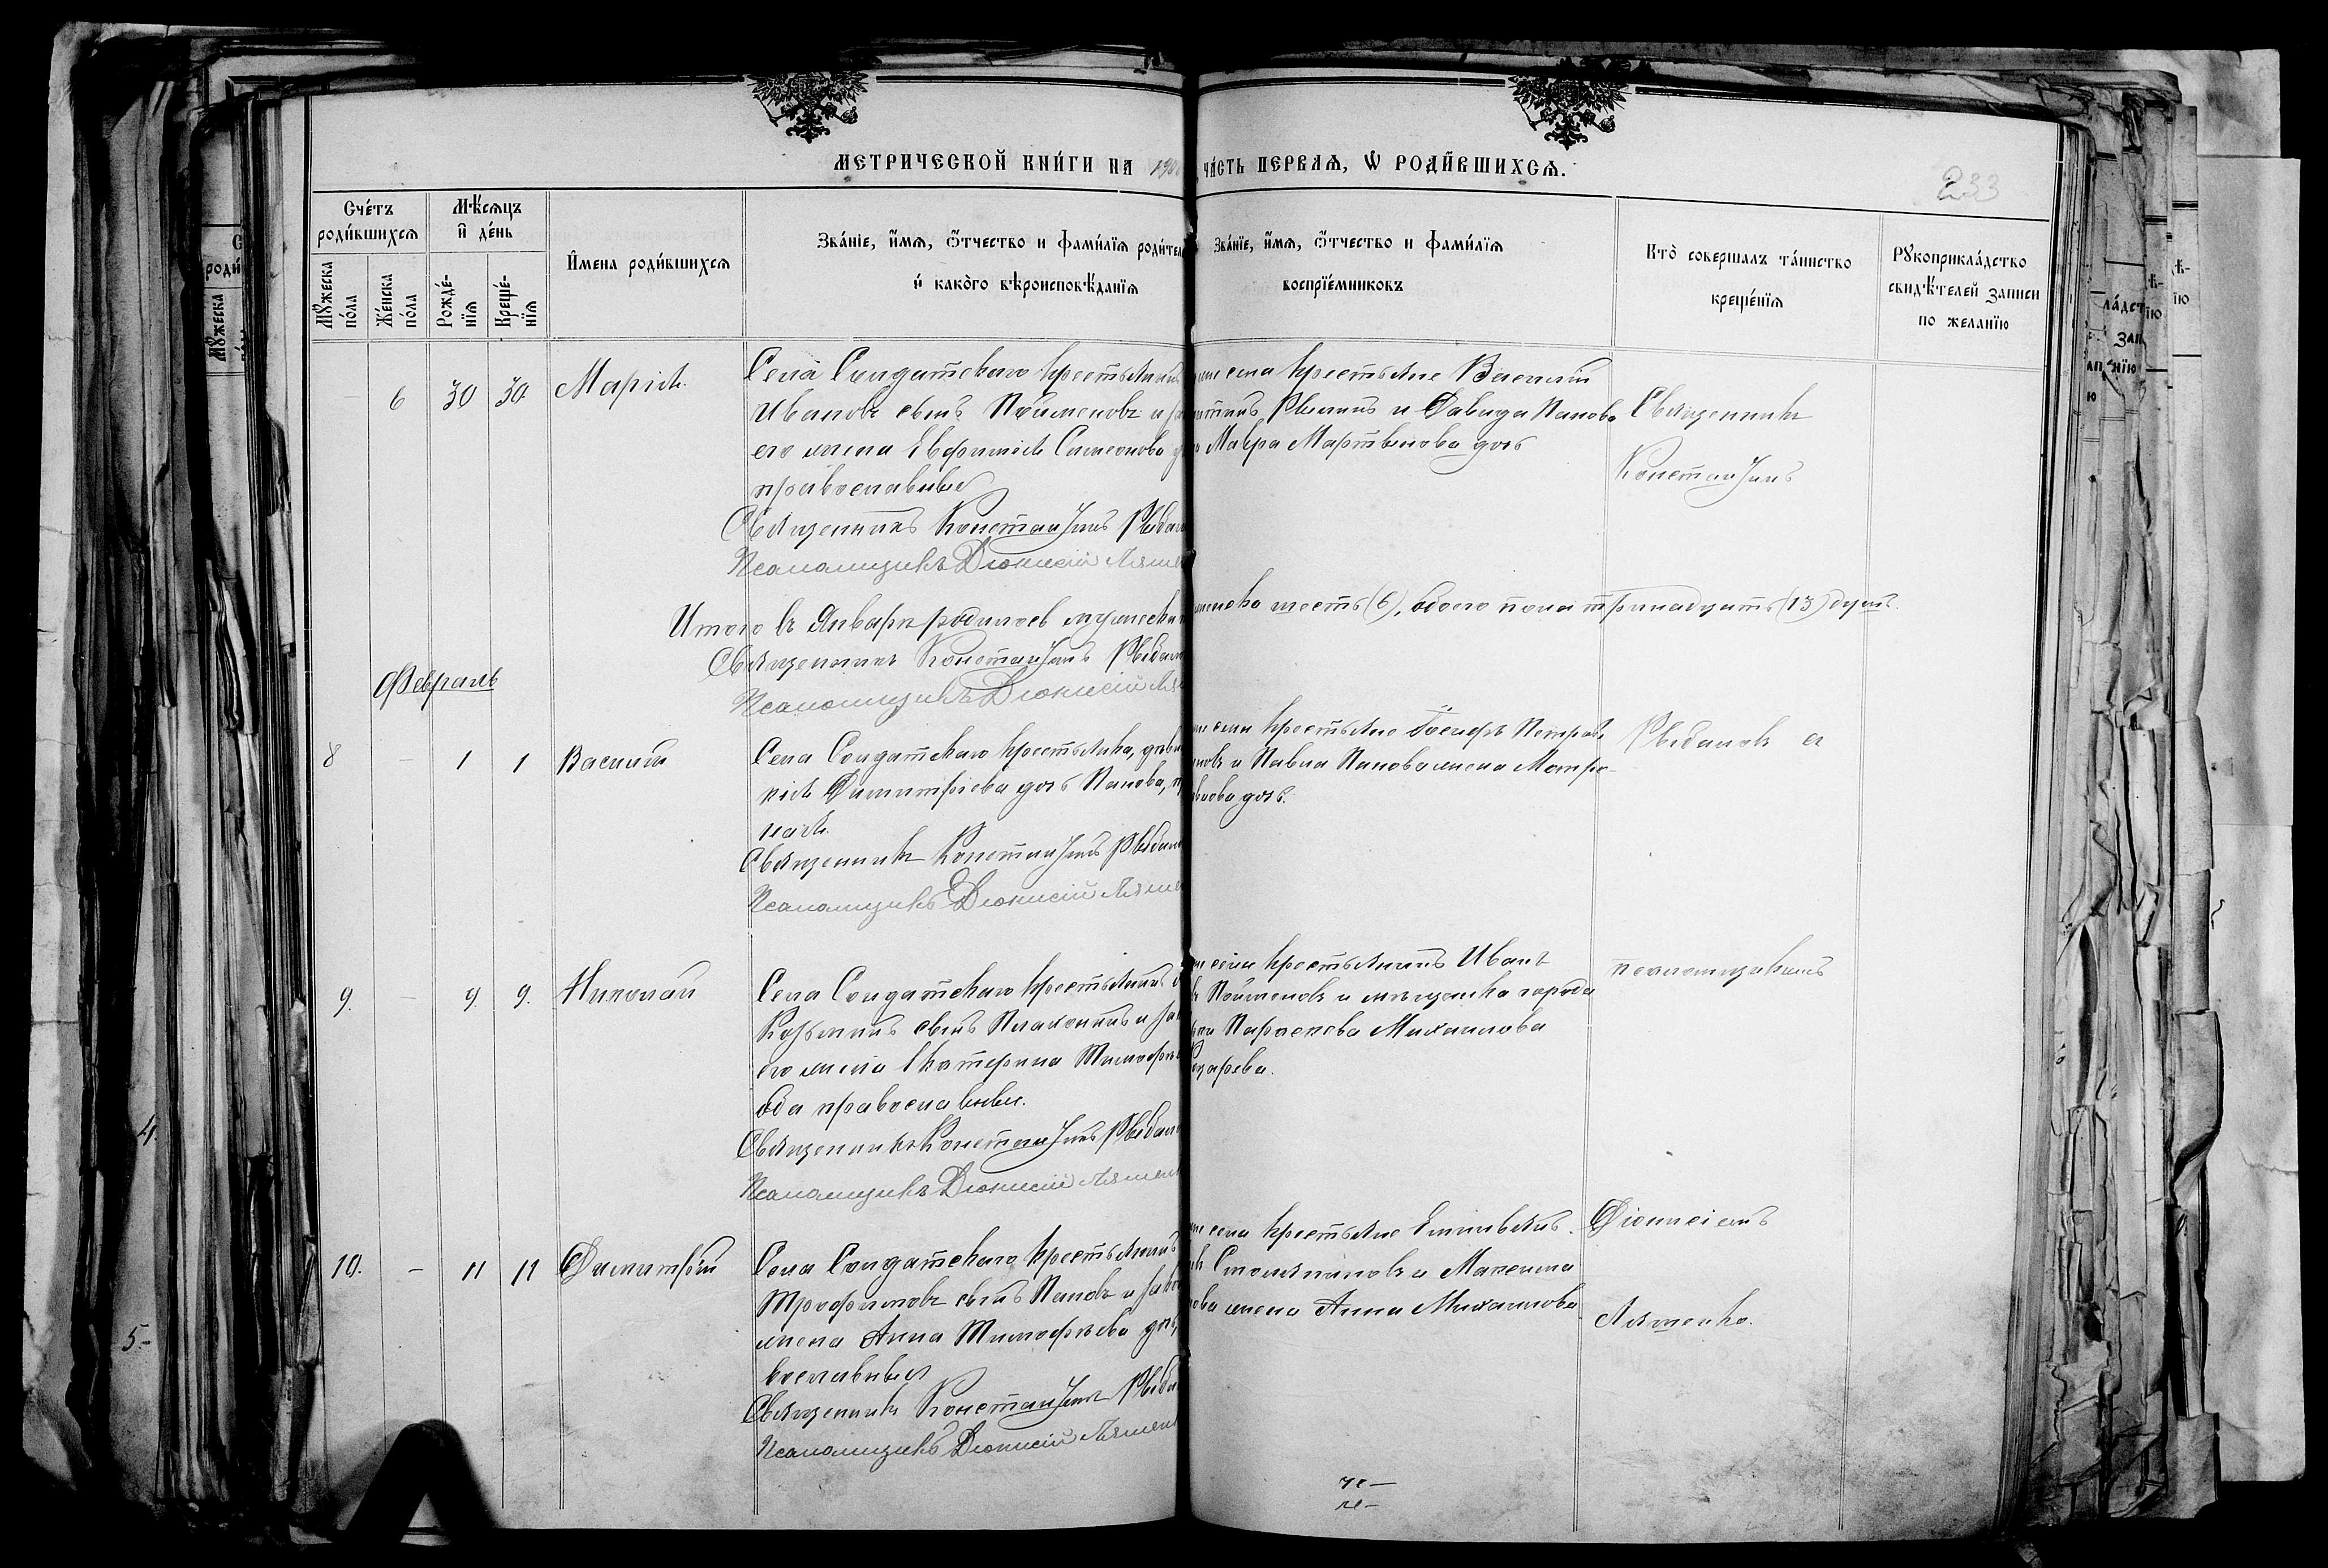 МЕТРИЧЕСКОЙ КНИ́ГИ НА 190
ЧА́СТЬ ПЕРВАѦ, Ѡ РОДИ́ВШИХСѦ.
233
Сче́тъ роди́вшихсѧ
Мѣ́сѧцъ и҆ де́нь
Мꙋ́жеска по́ла
Же́нска по́ла
Рожде́-нїѧ
Креще́-нїѧ
И҆мена роди́вшихсѧ
Зва́нїе, и҆́мѧ, ѻ҆́тчество и фами́лїѧ родите
и҆ како́го вѣроисповѣ́данїѧ
Зва́нїе, и҆́мѧ, ѻ҆́тчество и фами́лїѧ
воспрїе́мниковъ
Кто̀ совершалъ та́инство
креще́нїѧ
Рꙋкоприкла́дство
свидѣ́телей записи
по желанїю
6 30 30 Марія
Села Солдатскаго крестьянинъ
Ивановъ сынъ Пойменовъ и за
его жена Евфимія Симеонова
православные
Священникъ Константинъ Рыбал
Псаломщикъ Діонисій Ляше
села крестьяне Василій
и Давида Панова
Мавра Мартынова дочь
Священникъ
Константинъ
Итого въ Январѣ родилось мужеска
женска шесть (6), обоего пола тринадцать (13) душъ.
Священникъ Константинъ Рыбал
Псаломщикъ Діонисій Ля
Февраль
8 – 1 1 Василій
Села Солдатскаго крестьянка, дѣви
Димитріева дочь Панова, п
ная.
Священникъ Константинъ Рыбал
Псаломщикъ Діонисій Ляше
села крестьяне Іосифъ Петровъ
и Павла Панова жена Матро-
дочь.
Рыбалов съ
9. – 9 9. Николай
Села Солдатскаго крестьянинъ
Козьминъ сынъ Плахотинъ и за
его жена Екатерина Тимофѣе
оба православные.
Священникъ Константинъ Рыбал
Псаломщикъ Діонисій Ляшен
села крестьянинъ Иванъ
Пойменовъ и мѣщанка города
Параскева Михаилова
псаломщикомъ
10. – 11 11 Димитрій
Села Солдатскаго крестьянинъ
Трофимовъ сынъ Пановъ и зако
жена Анна Тимофѣева дочь,
вославные
Священникъ Константинъ Рыба
Псаломщикъ Діонисій Ляшен
села крестьяне Емиліянъ
и Максима
ова жена Анна Михаилова
Діонисіемъ
Ляшенко.